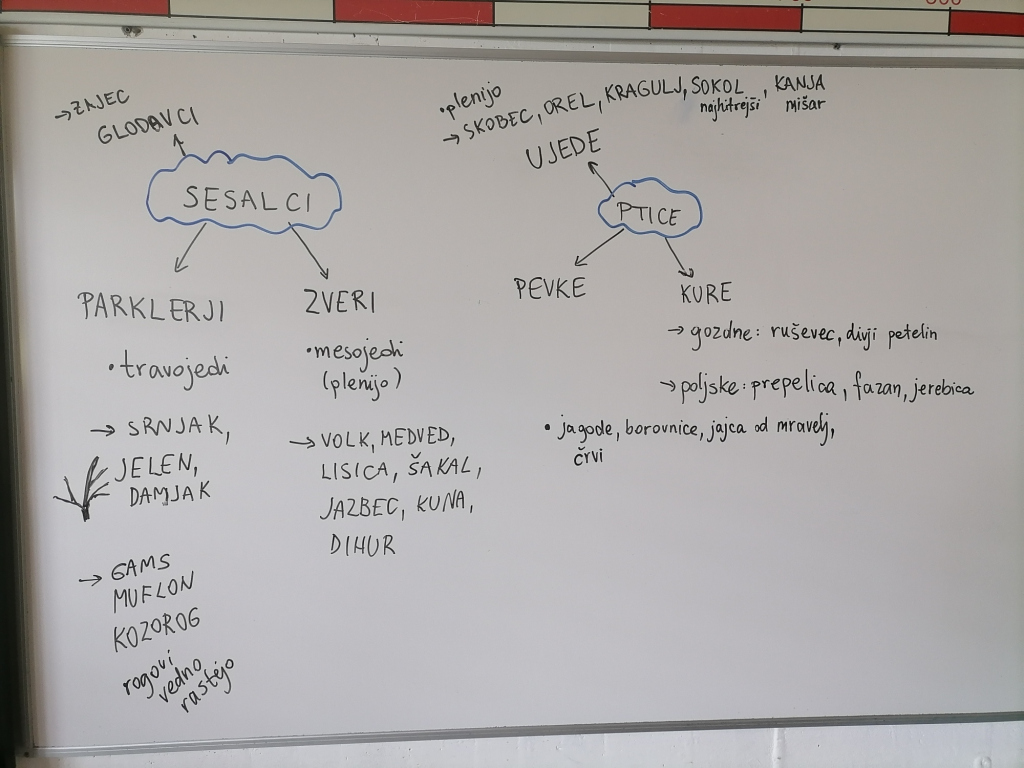 → ZAJEC
GLODAVCI
SESALCI
PARKLERJI
• travojedi
→ SRNJAK,
JELEN,
DAMJAK
→ GAMS
MUFLON
KOZOROG
rogovi
vedno
rastejo
ZVERI
• mesojedi
(plenijo)
→ VOLK, MEDVED,
LISICA, ŠAKAL,
JAZBEC, KUNA,
DIHUR
• plenijo
→ SKOBEC, OREL, KRAGULJ, SOKOL, KANJA
najhitrejši mišar
UJEDE
PTICE
PEVKE
KURE
→ gozdne: ruševec, divji petelin
→ poljske: prepelica, fazan, jerebica
• jagode, borovnice, jajca od mravelj,
črvi